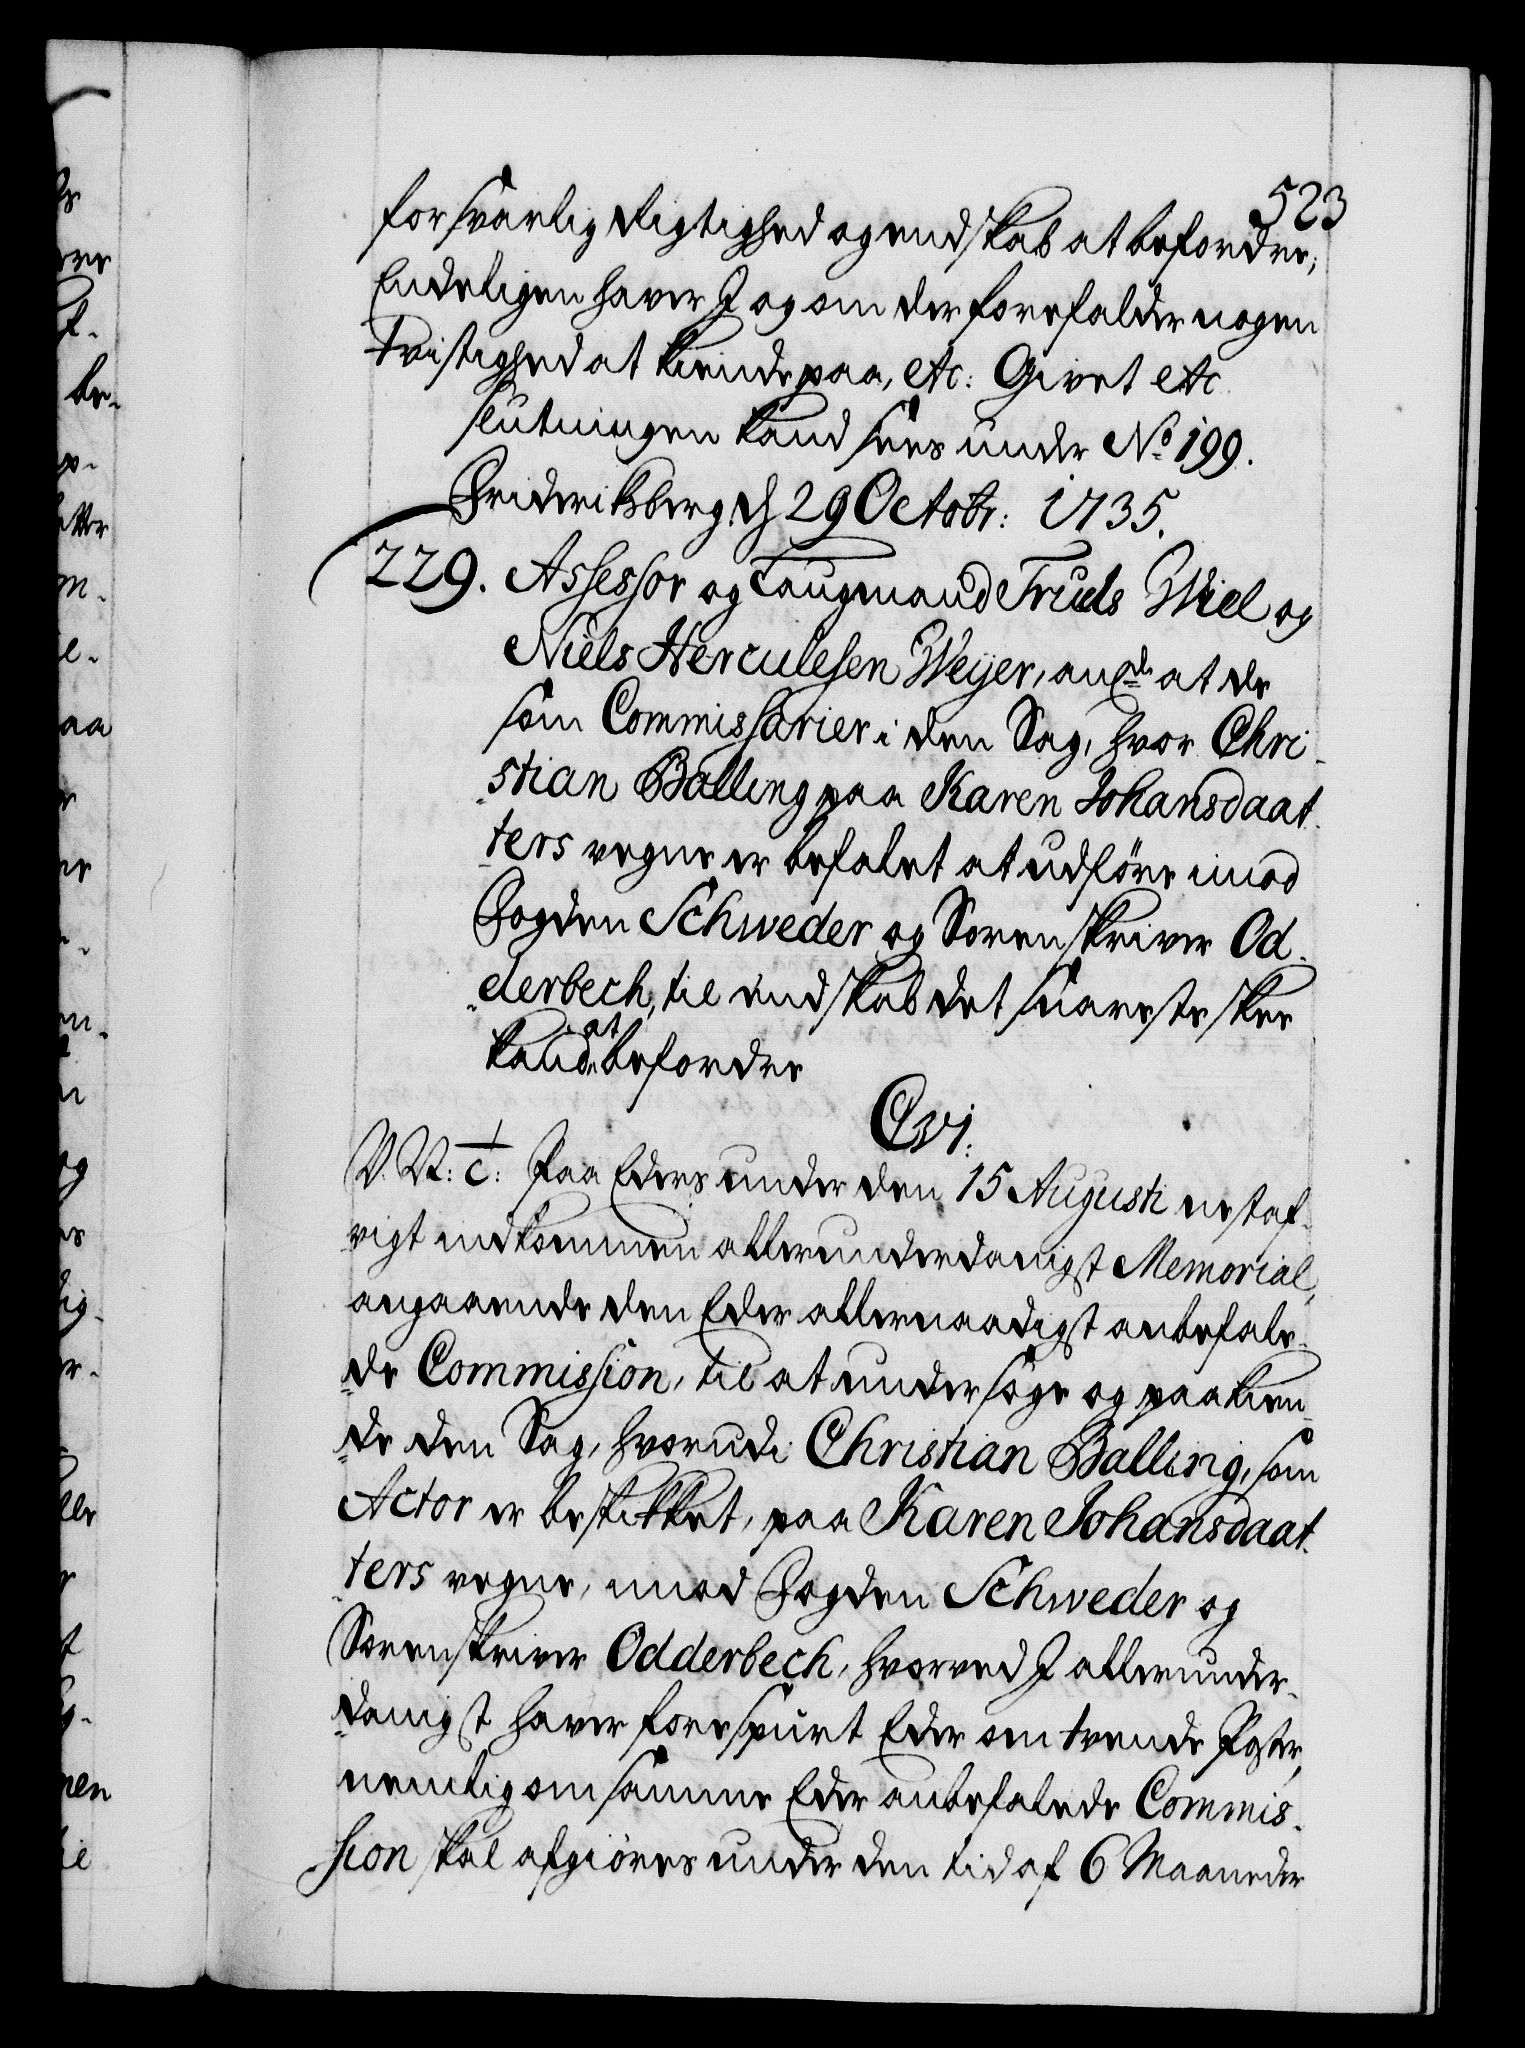 523
forsvarlig Rigtighed og endskab at befordre;
Endeligen haver I og om der forefalder nogen
Tvistighed at kiende paa, etc: Givet etc
slutningen kand sees under No 199.
Friderichsberg d 29 Octobr: 1735.
229. Assessor og Laugmand Truels Wiel og
Niels Herculesen Weyer, angde at de
som Commissarier i den Sag, hvor Chri-
stian Balling paa Karen Johansdaat-
ters vegne er befalet at udföre imod
Fogden Schweder og Sorenskriver Od-
derbech, til endskab det snareste skee
kand, at befordre
C 6ti.
V. Vt: c: Paa Eders under den 15 Augusti nestaf-
vigt indkommen allerunderdanigst Memorial,
angaaende den Eder allernaadigst anbefale-
de Commission, til at undersöge og paakien-
de den Sag, hvorudi Christian Balling, som
Actor er beskikket, paa Karen Johansdaat-
ters vegne, imod Fogden Schweder og
Sorenskriver Odderbech, hvorved I allerunder-
danigst haver forespurt Eder om trende Poster,
nemlig om samme Eder anbefalede Commis-
sion skal afgiöres under den tid af 6 Maaneder